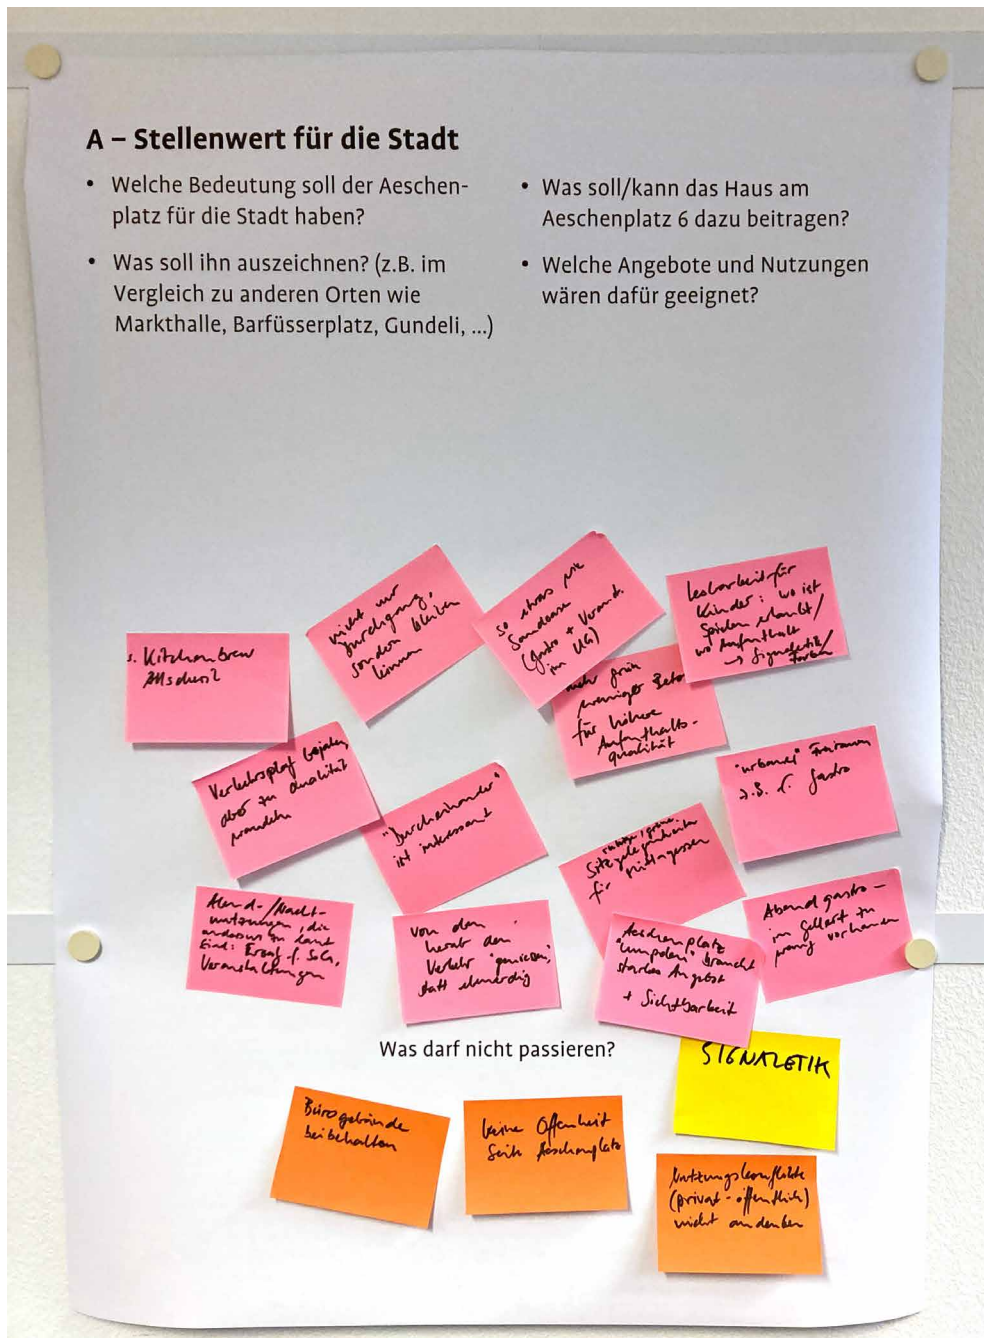 A – Stellenwert für die Stadt
• Welche Bedeutung soll der Aeschen-
platz für die Stadt haben?
• Was soll ihn auszeichnen? (z.B. im
Vergleich zu anderen Orten wie
Markthalle, Barfüsserplatz, Gundeli, ...)
• Was soll/kann das Haus am
Aeschenplatz 6 dazu beitragen?
• Welche Angebote und Nutzungen
wären dafür geeignet?
nicht nur
Durchgang,
sondern bleiben
können
so etwas wie
Sandoase
(Gastro + Veranst.
im UG)
Lesbarkeit für
Kinder: wo ist
Spielen erlaubt/
wo Aufenthalt
→ Signaletik/
Farben
s. Kitchenbrew
mehr grün
weniger Beto
für höhere
Aufenthalts-
qualität
Verkehrsplatz bejahen,
aber zu Qualität
wandeln
"Durcheinander"
ist interessant
Sitzgelegenheiten
für Mittagessen
"urbaner" Freiraum
z.B. f. Gastro
Abend-/Nacht-
nutzungen, die
anderswo zu laut
sind: Ersatz f. SoCa,
Veranstaltungen
von dem
herab den
Verkehr "geniessen",
statt ebenerdig
Aeschenplatz
"umpolen" braucht
starkes Angebot
+ Sichtbarkeit
Abendgastro –
im Gellert zu
wenig vorhanden
Was darf nicht passieren?
SIGNALETIK
Bürogebäude
beibehalten
keine Offenheit
Seite Aeschenplatz
Nutzungskonflikte
(privat - öffentlich)
nicht andenken